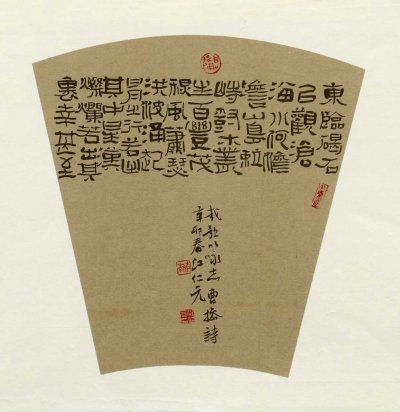 東臨碣石
以觀滄
海水何澹
澹山島竦
峙樹木叢
生百草豐茂
秋風蕭瑟
洪波涌起
日月之行若出
其中星漢
燦爛若出其
裏幸甚至
哉歌以詠志曹操詩
辛卯春江仁元